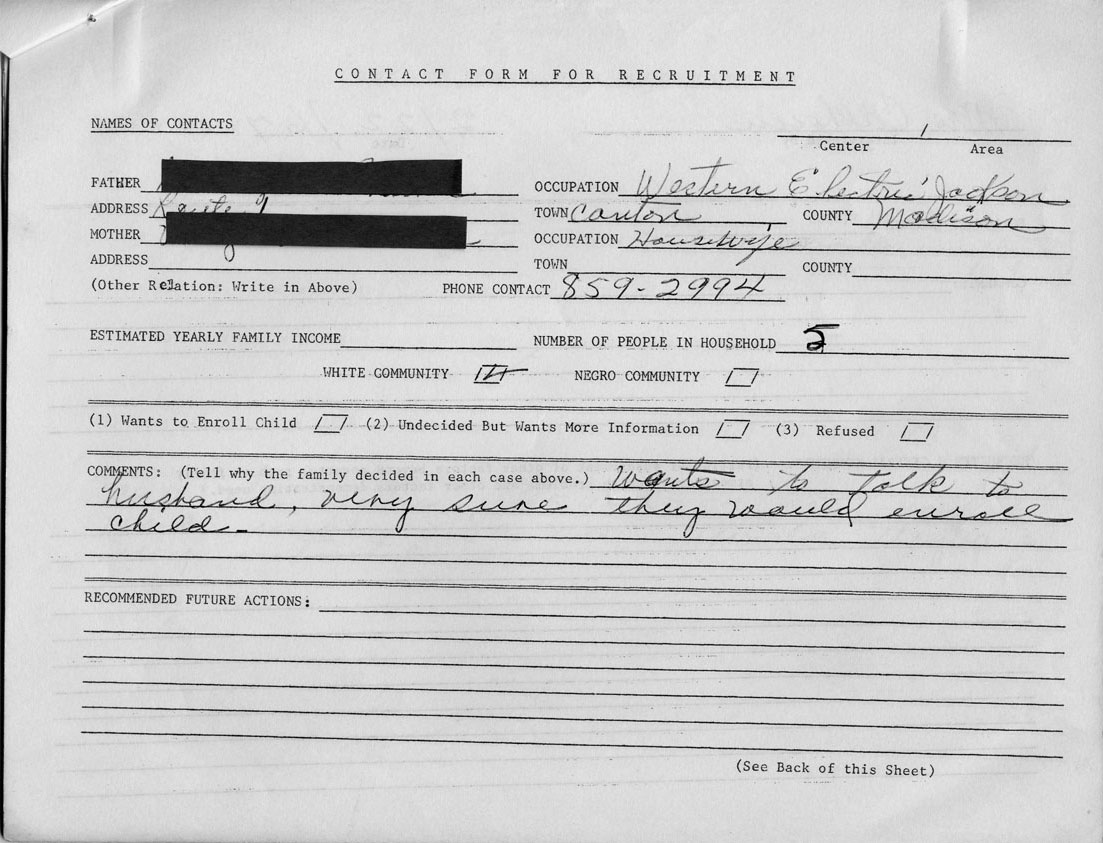 CONTACT FORM FOR RECRUITMENT
NAMES OF CONTACTS
/
Center Area
FATHER OCCUPATION Western Electric Jackson
ADDRESS Route 1 TOWN Canton COUNTY Madison
MOTHER OCCUPATION Housewife
ADDRESS TOWN COUNTY
(Other Relation: Write in Above) PHONE CONTACT 859-2994
ESTIMATED YEARLY FAMILY INCOME NUMBER OF PEOPLE IN HOUSEHOLD 5
WHITE COMMUNITY NEGRO COMMUNITY
(1) Wants to Enroll Child (2) Undecided But Wants More Information (3) Refused
COMMENTS: (Tell why the family decided in each case above.) Wants to talk to
husband, very sure they would enroll
child-
RECOMMENDED FUTURE ACTIONS:
(See Back of this Sheet)